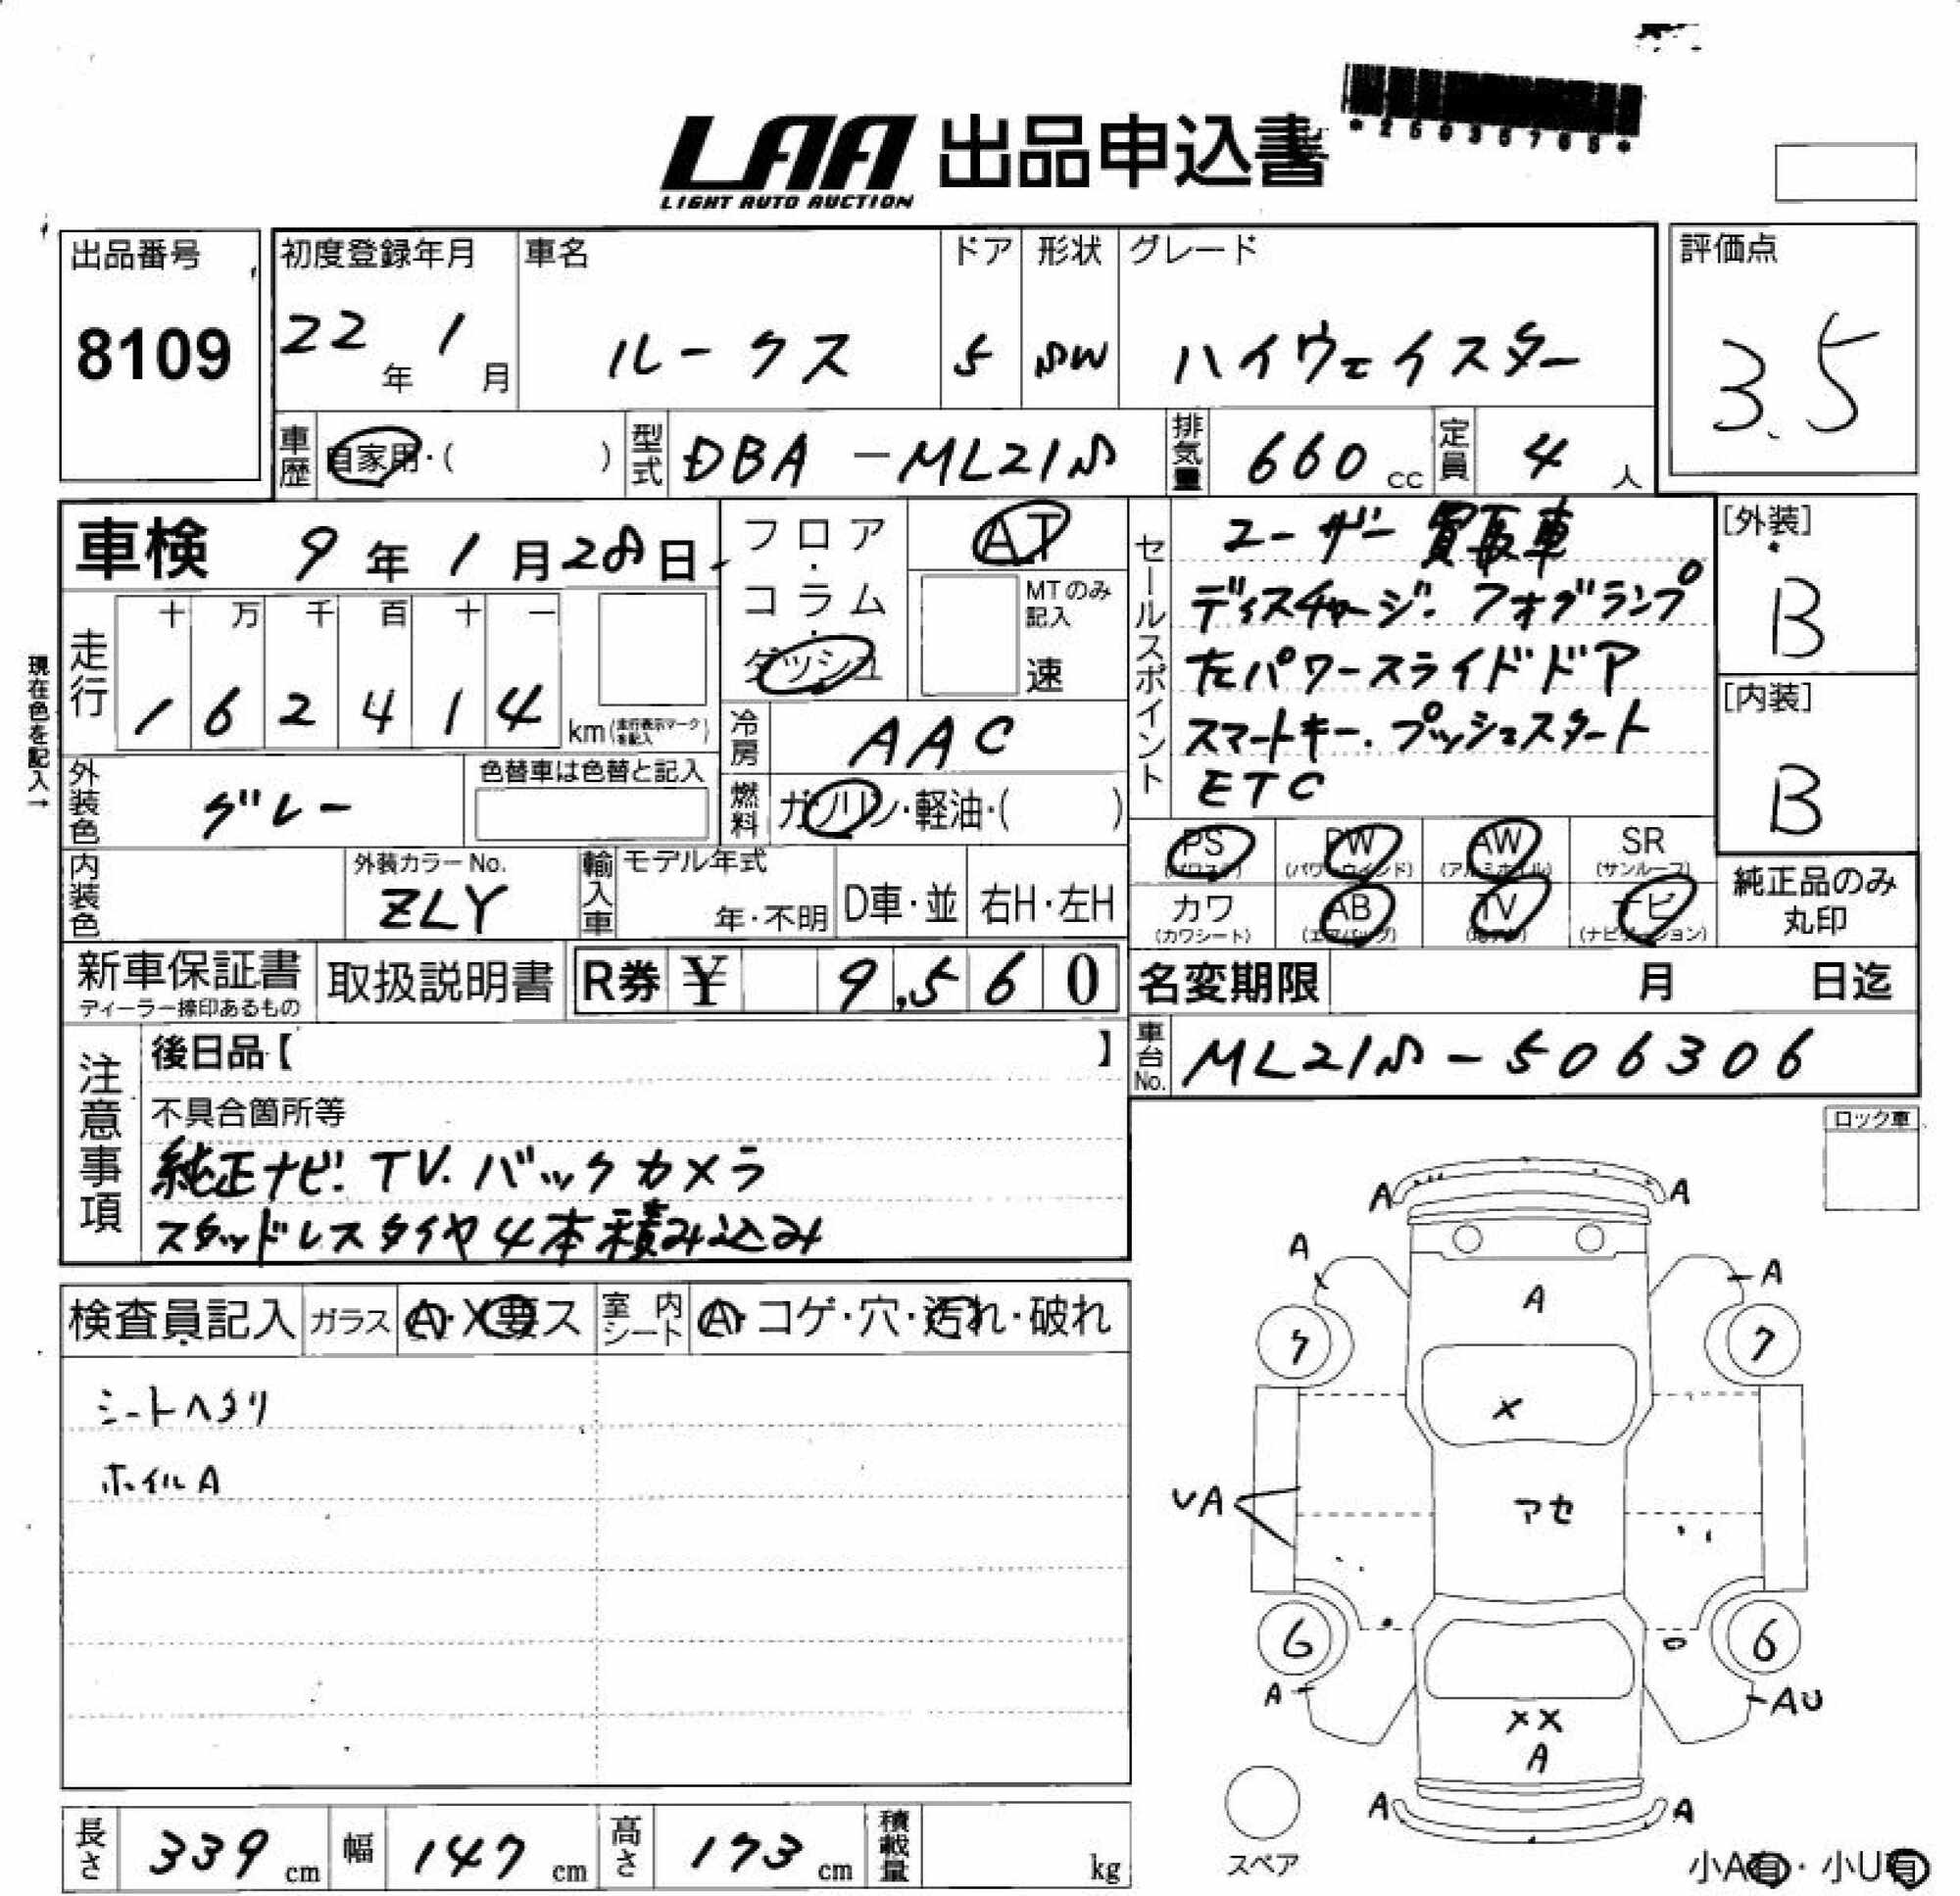 *25035765*
LAA 出品申込書
LIGHT AUTO AUCTION
出品番号
8109
初度登録年月
22年 1月
車名
ルークス
ドア
5
形状
SW
グレード
ハイウェイスター
評価点
3.5
車歴 自家用・( )
型式 DBA-ML21S
排気量 660 cc
定員 4 人
車検 9年 1月 28日
フロア・コラム・ダッシュ
AT
MTのみ記入
速
現在色を記入→
走行
十 万 千 百 十 一
1 6 2 4 1 4
km(走行表示マークを記入)
冷房 AAC
外装色 グレー
色替車は色替と記入
燃料 ガソリン・軽油・( )
内装色
外装カラーNo.
ZLY
輸入車
モデル年式
年・不明
D車・並
右H・左H
セールスポイント
ユーザー買取車
ディスチャージ.フォグランプ
左パワースライドドア
スマートキー.プッシュスタート
ETC
[外装]
B
[内装]
B
PS (パワステ)
PW (パワーウインド)
AW (アルミホイル)
SR (サンルーフ)
カワ (カワシート)
AB (エアバッグ)
TV
ナビ (ナビゲーション)
純正品のみ
丸印
新車保証書
ディーラー捺印あるもの
取扱説明書
R券 ¥ 9,560
名変期限 月 日迄
車台No. ML21S-506306
注意事項
後日品【 】
不具合箇所等
純正ナビ.TV.バックカメラ
スタッドレスタイヤ4本積み込み
ロック車
検査員記入
ガラス A・X要ス
室内シート A・コゲ・穴・汚れ・破れ
シートヘタリ
ホイルA
A A
A A
A
7 7
X
VA
アセ
6 6
A AU
XX
A
A A
スペア
小A有・小U有
長さ 339 cm
幅 147 cm
高さ 173 cm
積載量 kg